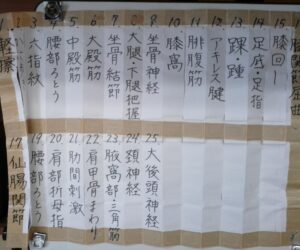 軽擦
3 六指紋
4 腰部ろとう
5 中殿筋
6 大殿筋
7 坐骨結節
8 大腿下腿把握
9 坐骨神経
10 膝窩
11 腓腹筋
12 アキレス腱
13 踝踵
14 足底・足指
15 膝回し
17 仙腸関節
19 腰部ろとう
20 肩部折母指
21 肋間刺激
22 肩甲骨まわり
23 腋窩部・三角筋
24 頚神経
25 大後頭神経